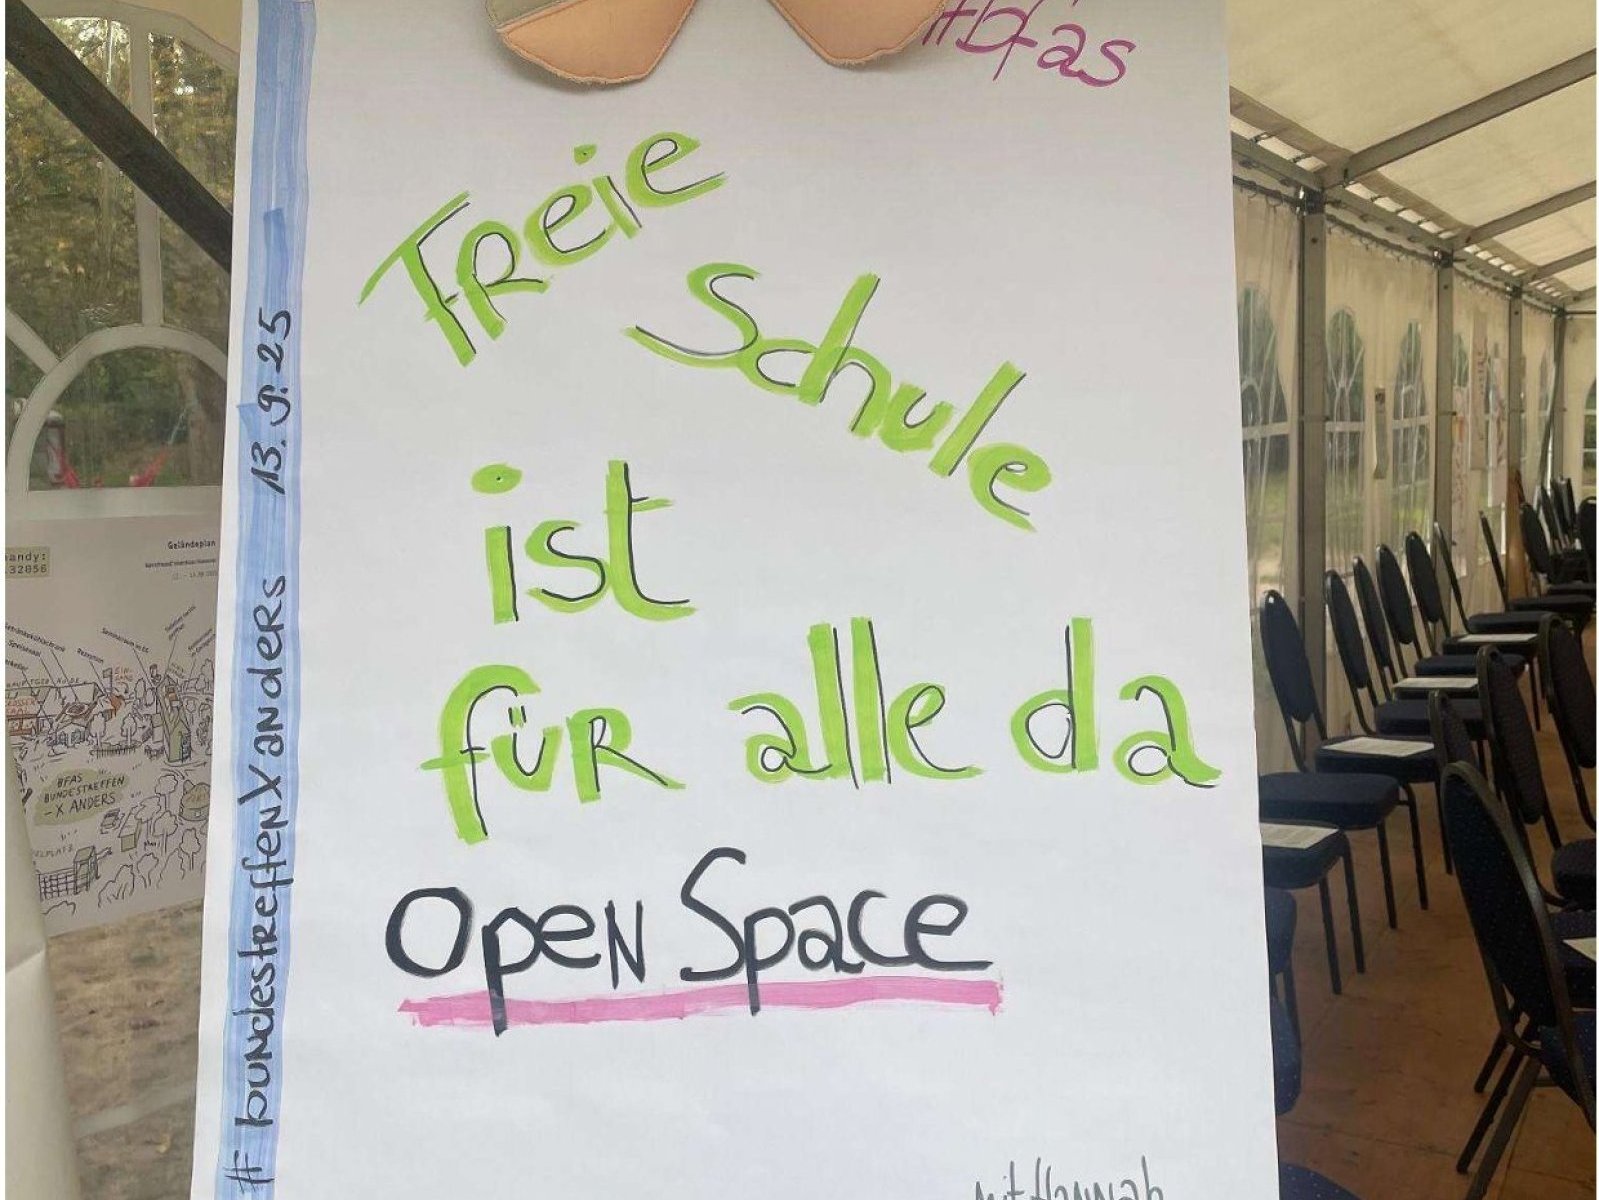 #bfas
Freie
Schule
ist
für alle da
Open Space
mit Hannah
#bundestreffenXanders 13.9.25
andy:
32056
Geländeplan
Rezeption
BFAS
BUNDESTREFFEN
-X ANDERS